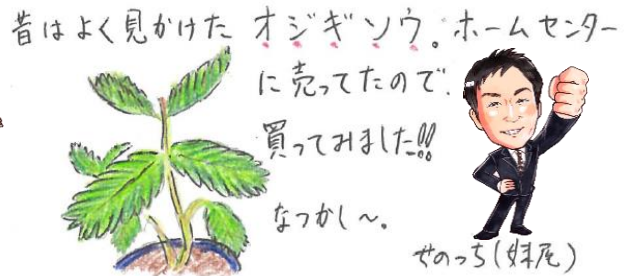 昔はよく見かけた オジギソウ。ホームセンター
に売ってたので、
買ってみました!!
なつかし～。
せのっち(妹尾)